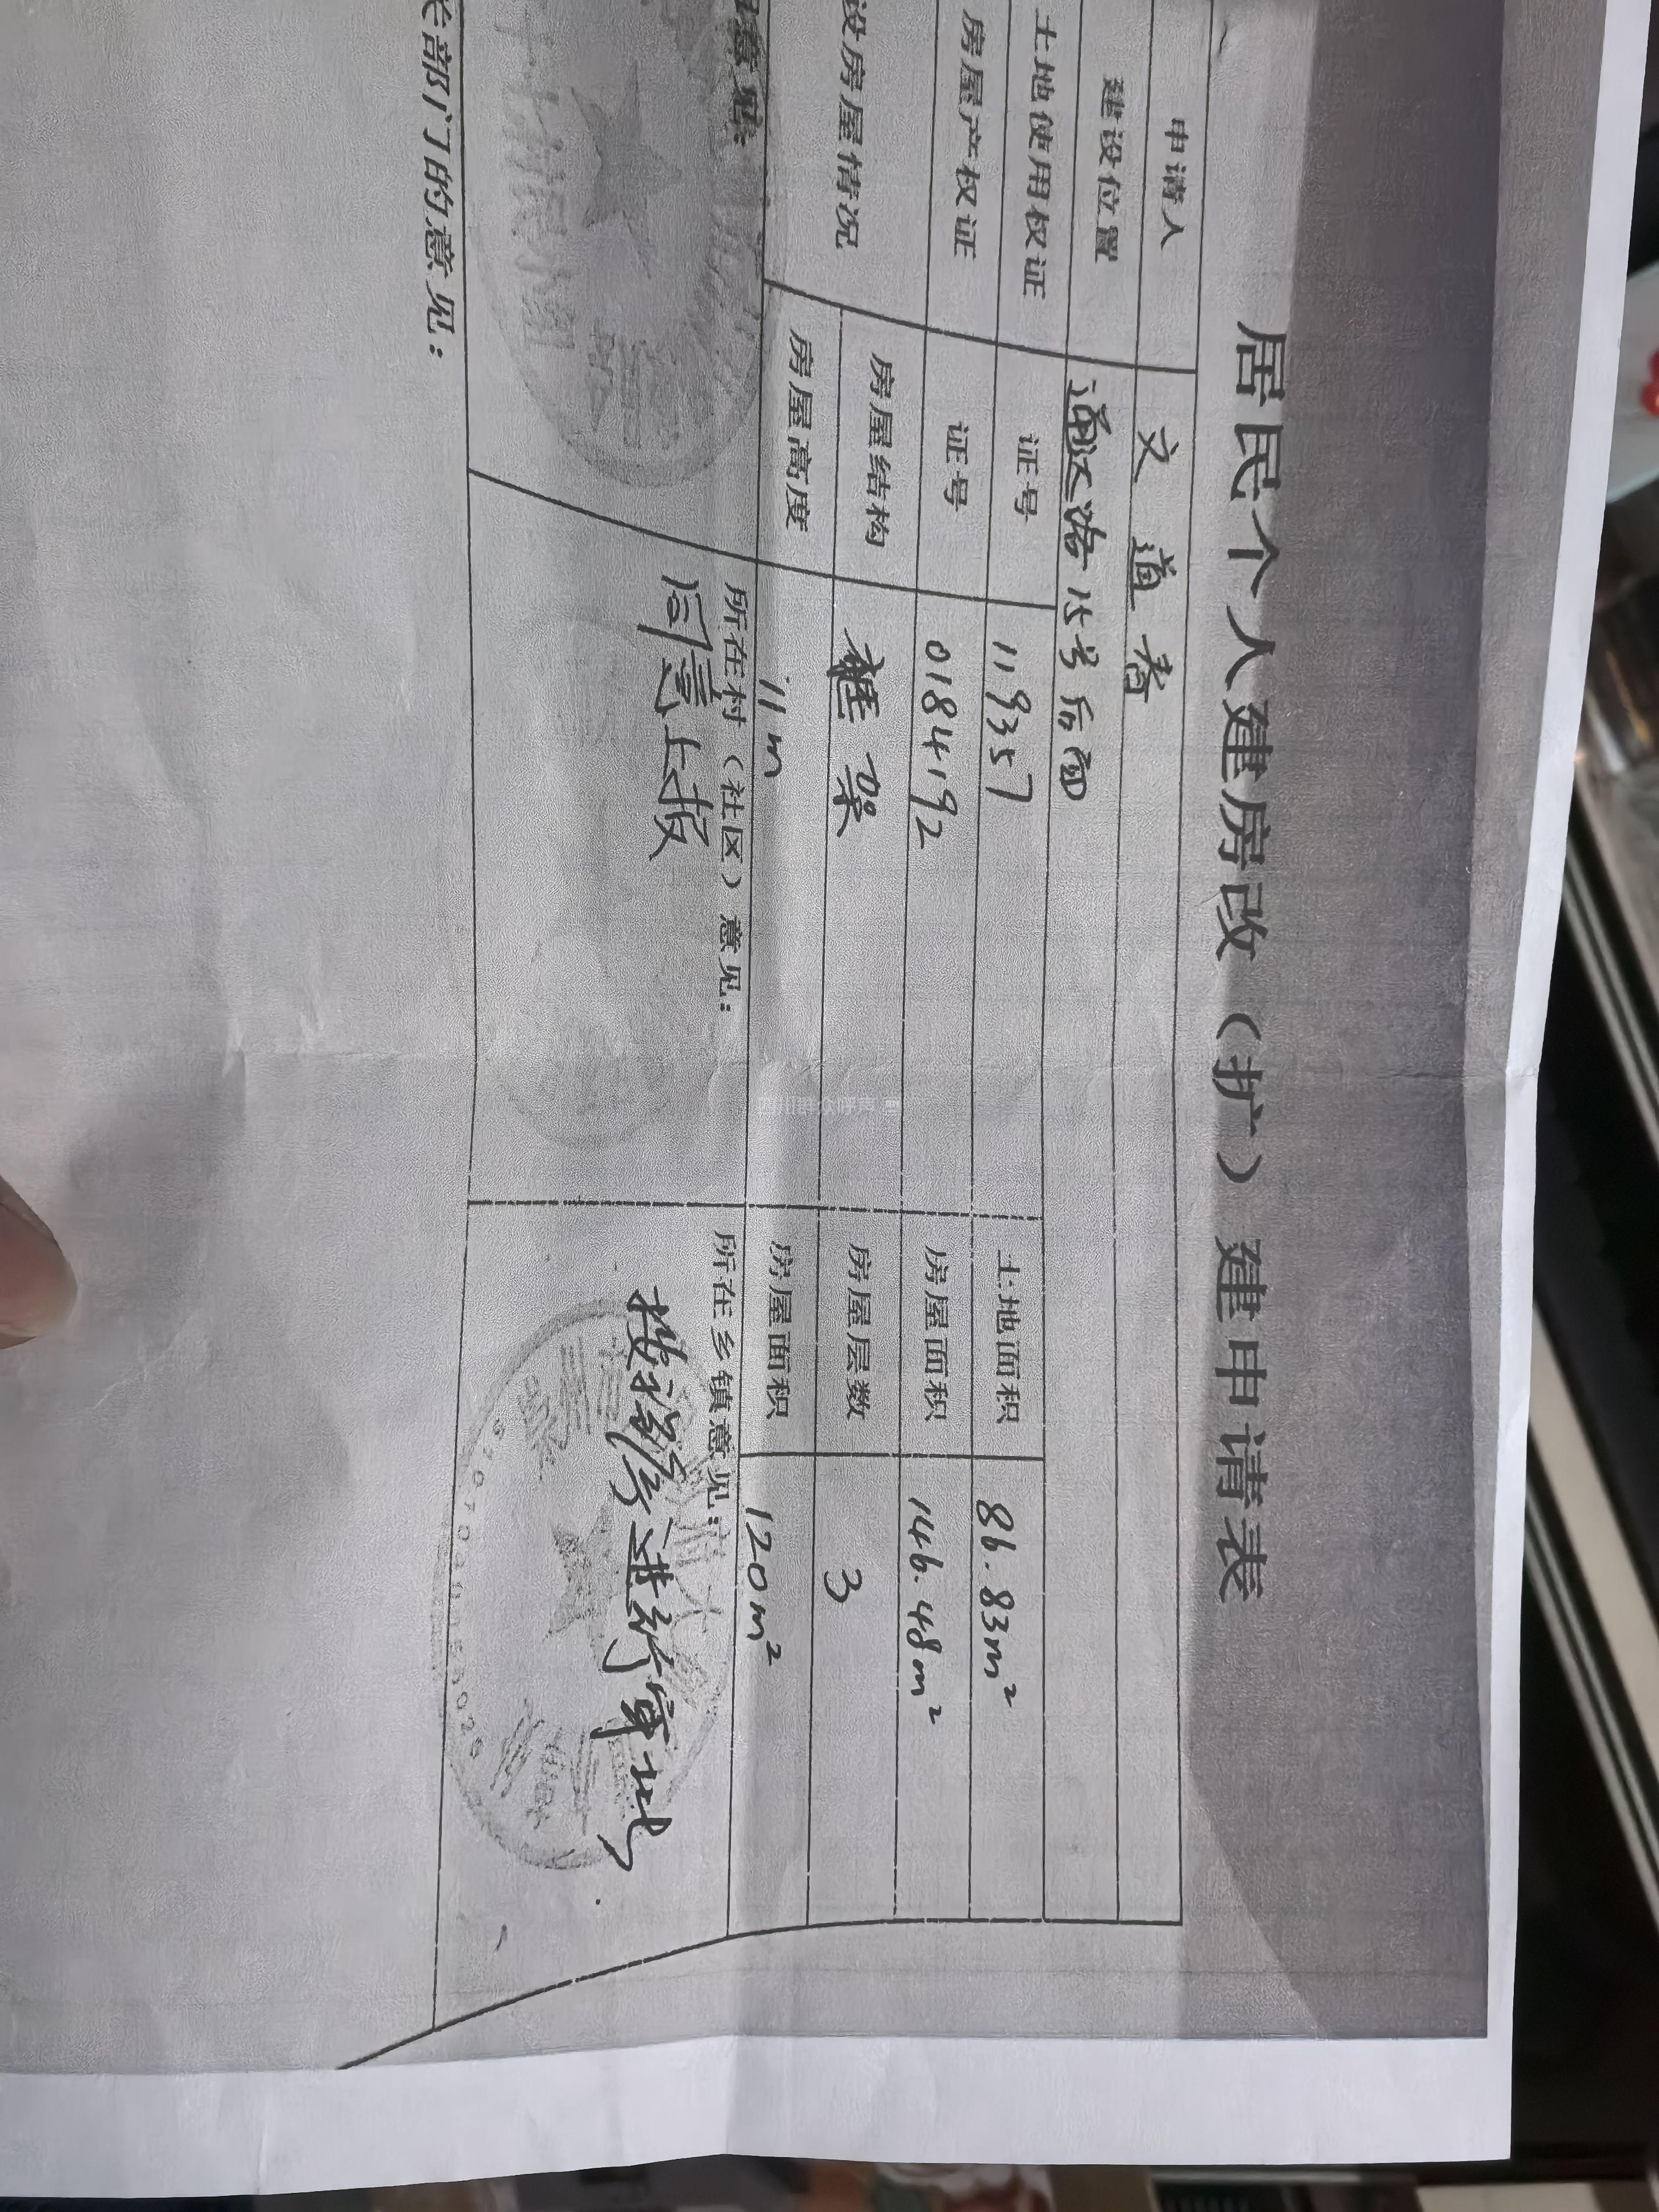 居民个人建房改（扩）建申请表
申请人 文道春
建设位置 通达路15号后面
土地使用权证 证号 119357 土地面积 86.83m²
房屋产权证 证号 0184192 房屋面积 146.48m²
设房屋情况 房屋结构 框架 房屋层数 3
房屋高度 11m 房屋面积 120m²
意见： 所在村（社区）意见： 所在乡镇意见：
同意上报 按程序进行审批
关部门的意见：
四川群众呼声